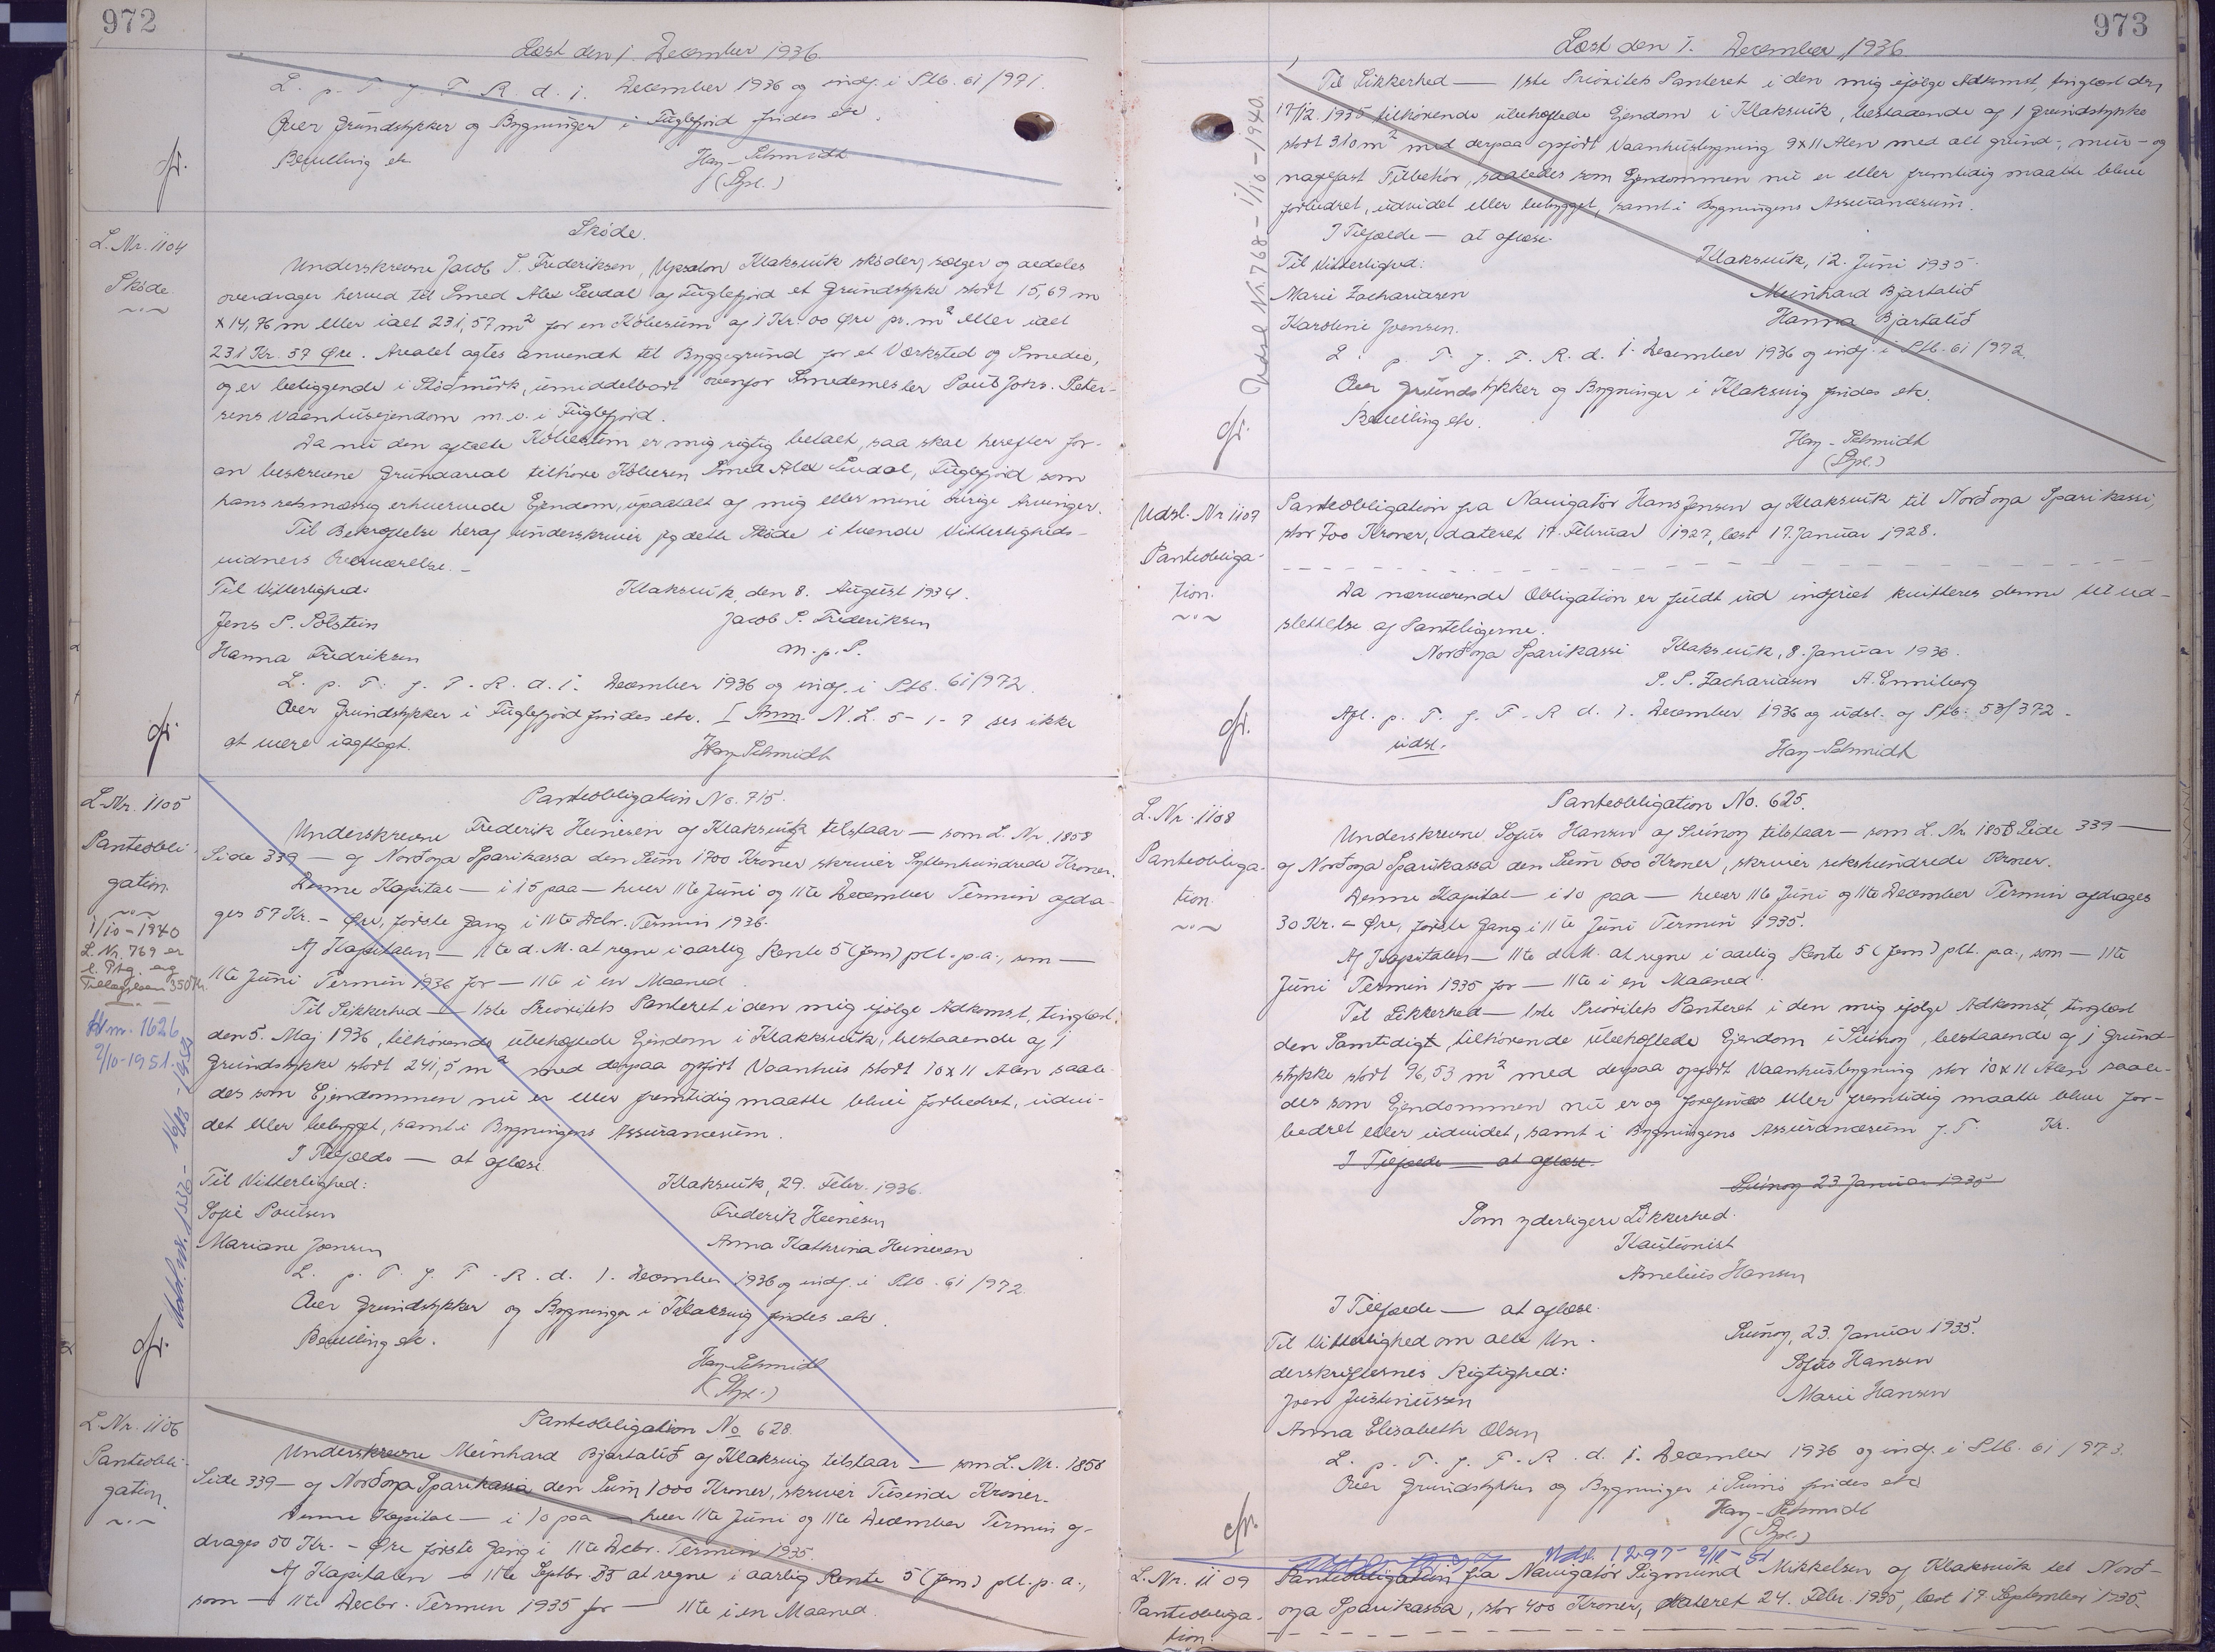 972
Læst den 1. December 1936.
L. p. T. f. F. R. d. 1. December 1936 og indf. i Ptb. 61/971.
Over Grundstykker og Bygninger i Fuglefjord findes etc.
Bevilling etc.
Hay-Schmidt
(Spl.)
cfr.
L. Nr. 1104
Skøde
Skøde.
Underskrevne Jacob S. Frederiksen, Upsalon Klaksvik skøder, sælger og aedeles
overdrager herved til Smed Alex Sevdal af Fuglefjord et Grundstykke stort 15,69 m
x 14,76 m eller ialt 231,57 m² for en Købesum af 1 Kr. 00 Øre pr. m² eller ialt
231 Kr. 57 Øre. Arealet agtes anvendt til Byggegrund for et Værksted og Smedie,
og er beliggende i umiddelbart ovenfor Smedemester Poul Johs. Peter-
sens Vaanhusejendom m.v. i Fuglefjord.
Da nu den aftalte Købesum er mig rigtig betalt, saa skal herefter for-
an beskrevne Grundareal tilhøre Køberen Smed Alex Sevdal, Fuglefjord som
hans retsmæssig erhvervede Ejendom, upaatalt af mig eller mine øvrige Arvinger.
Til Bekræftelse heraf underskriver jeg dette Skøde i tvende Vitterligheds-
vidners Overværelse. -
Til Vitterlighed: Klaksvik, den 8. August 1934.
Jens P. Sólstein Jacob S. Frederiksen
Hanna Fredriksen m. p. S.
L. p. T. f. F. R. d. 1. December 1936 og indf. i Ptb. 61/972.
Over Grundstykker i Fuglefjord findes etc. I Anm. N. L. 5-1-7 ses ikke
at være iagttagt. Hay-Schmidt
cfr.
L. Nr. 1105
Panteobli-
gation.
1/10-1940
L. Nr. 769 er
l. Ptg. ang.
Tillægslaan 350 Kr.
Hm. 1626
9/10-1951.
Panteobligation No. 715.
Underskrevne Frederik Heinesen af Klaksvik tilstaar — som L. Nr. 1858
Side 339 — af Norðoya Sparikassa den Sum 1700 Kroner, skriver Syttenhundrede Kroner.
Denne Kapital — i 15 paa — hver 11te Juni og 11te December Termin afdra-
ges 57 Kr. - Øre, første Gang i 11te Decbr. Termin 1936.
Af Kapitalen — 11te d. M. at regne i aarlig Rente 5 (fem) pCt. p. a., som —
11te Juni Termin 1936 for — 11te i en Maaned.
Til Sikkerhed — 1ste Prioritets Panteret i den mig ifølge Adkomst, tinglæst
den 5. Maj 1936, tilhørende ubehæftede Ejendom i Klaksvik, bestaaende af 1
Grundstykke stort 241,5 m² med derpaa opført Vaanhus stort 10 x 11 Alen saale-
des som Ejendommen nu er eller fremtidig maatte blive forbedret, udvi-
det eller bebygget, samt i Bygningens Assurancesum.
I Tilfælde — at aflæse.
Til Vitterlighed: Klaksvik, 29. Febr. 1936.
Sofie Poulsen Frederik Heinesen
Mariane Joensen Anna Kathrina Heinesen
L. p. T. f. F. R. d. 1. December 1936 og indf. i Ptb. 61/972.
Over Grundstykker og Bygninger i Klaksvig findes etc.
Bevilling etc.
Hay-Schmidt
(Spl.)
cfr.
L. Nr. 1106
Panteobli-
gation.
Panteobligation No 628.
Underskrevne Meinhard Bjartalíð af Klaksvig tilstaar — som L. Nr. 1858
Side 339 — af Norðoya Sparikassa den Sum 1000 Kroner, skriver Tusinde Kroner.
Denne Kapital — i 10 paa — hver 11te Juni og 11te December Termin af-
drages 50 Kr. - Øre første Gang i 11te Decbr. Termin 1935.
Af Kapitalen — 11te Septbr. 35 at regne i aarlig Rente 5 (fem) pCt. p. a.,
som — 11te Decbr. Termin 1935 for — 11te i en Maaned.
973
Læst den 1. December 1936
Udsl. Nr. 768 - 1/10-1940.
Til Sikkerhed — 1ste Prioritets Panteret i den mig ifølge Adkomst, tinglæst den
17/12 1935 tilhørende ubehæftede Ejendom i Klaksvik, bestaaende af 1 Grundstykke
stort 310 m² med derpaa opført Vaanhusbygning 9 x 11 Alen med alt grund-, mur- og
nagefast Tilbehør, saaledes som Ejendommen nu er eller fremtidig maatte blive
forbedret, udvidet eller bebygget, samt i Bygningens Assurancesum.
I Tilfælde — at aflæse.
Til Vitterlighed: Klaksvik, 12. Juni 1935.
Marie Zachariasen Meinhard Bjartalíð
Karoline Joensen. Hanna Bjartalíð
L. p. T. f. F. R. d. 1. December 1936 og indf. i Ptb. 61/972.
Over Grundstykker og Bygninger i Klaksvig findes etc.
Bevilling etc.
Hay-Schmidt
(Spl.)
cfr.
Udsl. Nr 1107
Panteobliga-
tion.
Panteobligation fra Navigatør Hans Jensen af Klaksvik til Norðoya Sparikassi,
stor 700 Kroner, dateret 17. Februar 1927, læst 17. Januar 1928.
Da nærværende Obligation er fuldt ud indfriet kvitteres denne til ud-
slettelse af Pantebøgerne.
Norðoya Sparikassi Klaksvik, 8. Januar 1936.
P. S. Zachariasen A. Enniberg
Afl. p. T. f. F. R. d. 1. December 1936 og udsl. af Ptb. 53/372.
udsl. Hay-Schmidt
cfr.
L. Nr. 1108
Panteobliga-
tion.
Panteobligation No. 625.
Underskrevne Sofus Hansen af Svinoy tilstaar — som L. Nr. 1858 Side 339 —
af Norðoya Sparikassa den Sum 600 Kroner, skriver sekshundrede Kroner.
Denne Kapital — i 10 paa — hver 11te Juni og 11te December Termin afdrages
30 Kr. - Øre, første Gang i 11te Juni Termin 1935.
Af Kapitalen — 11te d. M. at regne i aarlig Rente 5 (fem) pCt. p.a., som — 11te
Juni Termin 1935 for — 11te i en Maaned.
Til Sikkerhed — 1ste Prioritets Panteret i den mig ifølge Adkomst, tinglæst
den Samtidigt, tilhørende ubehæftede Ejendom i Svinoy, bestaaende af 1 Grund-
stykke stort 96,53 m² med derpaa opført Vaanhusbygning stor 10 x 11 Alen saale-
des som Ejendommen nu er og forefindes eller fremtidig maatte blive for-
bedret eller udvidet, samt i Bygningens Assurancesum f. T. Kr.
I Tilfælde — at aflæse.
Svinoy 23 Januar 1935
Som yderligere Sikkerhed.
Kautionist
Amelius Hansen
I Tilfælde — at aflæse.
Til Vitterlighed om alle Un- Svinoy, 23. Januar 1935.
derskrifternes Rigtighed: Sofus Hansen
Joen Justinussen Marie Hansen
Anna Elisabeth Olsen
L. p. T. f. F. R. d. 1. December 1936 og indf. i Ptb. 61/973.
Over Grundstykker og Bygninger i Svinø findes etc
Hay-Schmidt
(Spl.)
cfr.
Udsl. 1297- 9/11-51
L. Nr. 1109
Panteobliga-
tion.
Panteobligation fra Navigatør Sigmund Mikkelsen af Klaksvik til Norð-
oya Sparikassa, stor 400 Kroner, dateret 24. Febr. 1935, læst 17. September 1935.